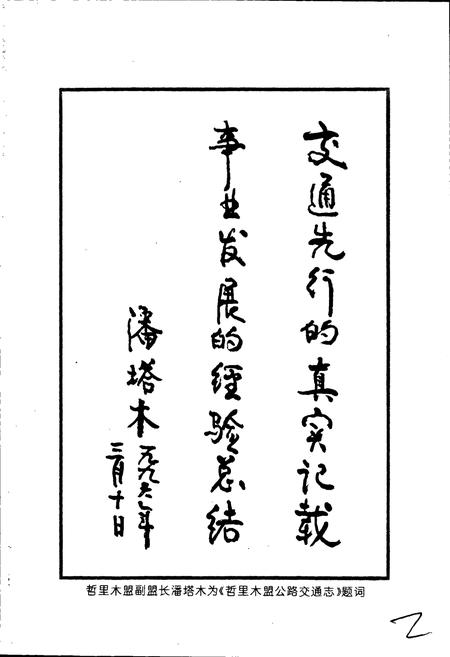 交通先行的真实记载
事业发展的经验总结
潘塔木
一九九六年
三月十日
哲里木盟副盟长潘塔木为《哲里木盟公路交通志》题词